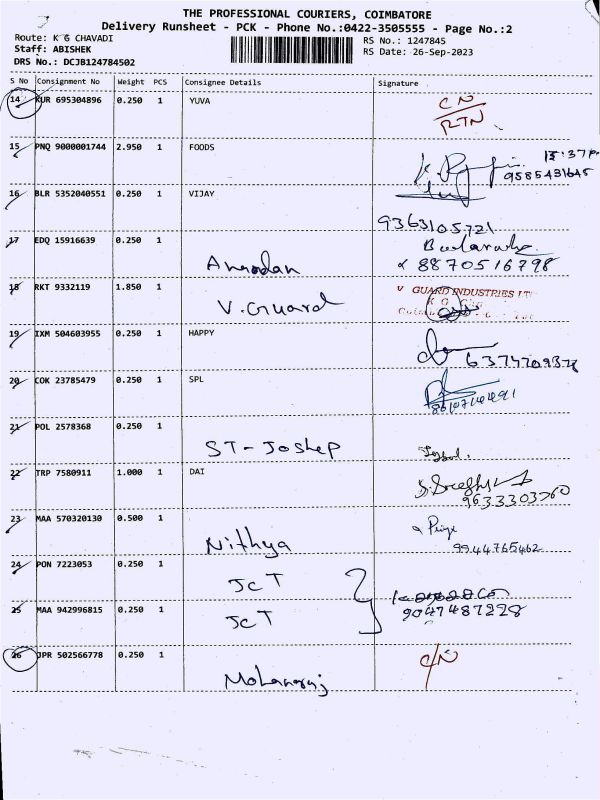 THE PROFESSIONAL COURIERS, COIMBATORE
Delivery Runsheet - PCK - Phone No.:0422-3505555 - Page No.:2
Route: K G CHAVADI
RS No.: 1247845
Staff: ABISHEK
RS Date: 26-Sep-2023
DRS No.: DCJB124784502
S No Consignment No Weight PCS Consignee Details Signature
14 KUR 695304896 0.250 1 YUVA CN
RTN
15 PNQ 9000001744 2.950 1 FOODS
9585431645
16 BLR 5352040551 0.250 1 VIJAY
9363105721
17 EDQ 15916639 0.250 1
Anandan 8870516798
18 RKT 9332119 1.850 1 V GUARD INDUSTRIES LT
V. Guard K G
19 IXM 504603955 0.250 1 HAPPY
6374709378
20 COK 23785479 0.250 1 SPL
21 POL 2578368 0.250 1
ST-Joshep
22 TRP 7580911 1.000 1 DAI
9633303760
23 MAA 570320130 0.500 1
Nithya 9944765462
24 PON 7223053 0.250 1
JCT
25 MAA 942996815 0.250 1 9047487228
JCT
26 JPR 502566778 0.250 1 C/N
Mohanraj